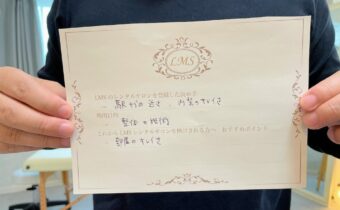 LMS
LMSのレンタルサロンを登録した決め手
・駅からの近さ・お部屋のキレイさ
利用目的
・整体の施術
これからLMSレンタルサロンを検討される方へ おすすめポイント
・部屋のキレイさ